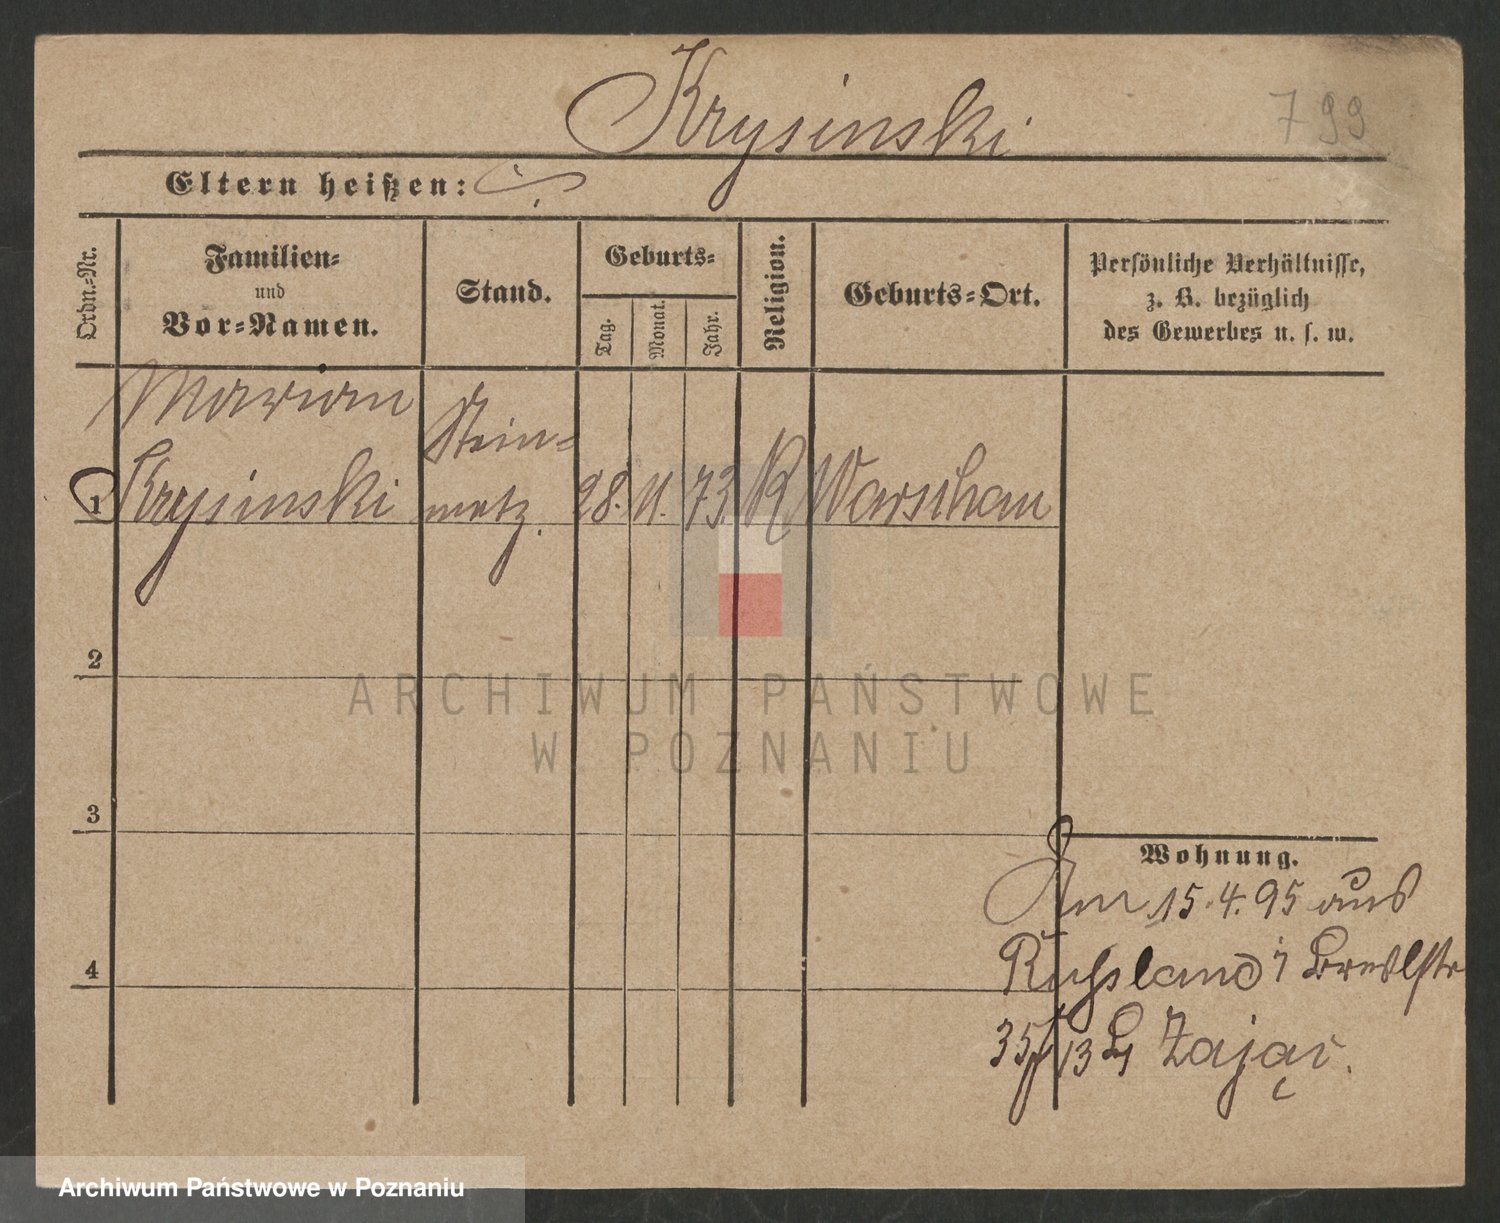 Krysinski
799
Eltern heißen:
Ordn.-Nr.
Familien-
und
Vor-Namen.
Stand.
Geburts-
Tag.
Monat.
Jahr.
Religion.
Geburts-Ort.
Persönliche Verhältnisse,
z. B. bezüglich
des Gewerbes u. s. w.
Marian Stein-
1 Krysinski metz. 28. 11. 73. K Warschau
2
ARCHIWUM PAŃSTWOWE
W POZNANIU
3
Wohnung.
Am 15.4.95 aus
4
Russland
35/13 b Zając.
Archiwum Państwowe w Poznaniu